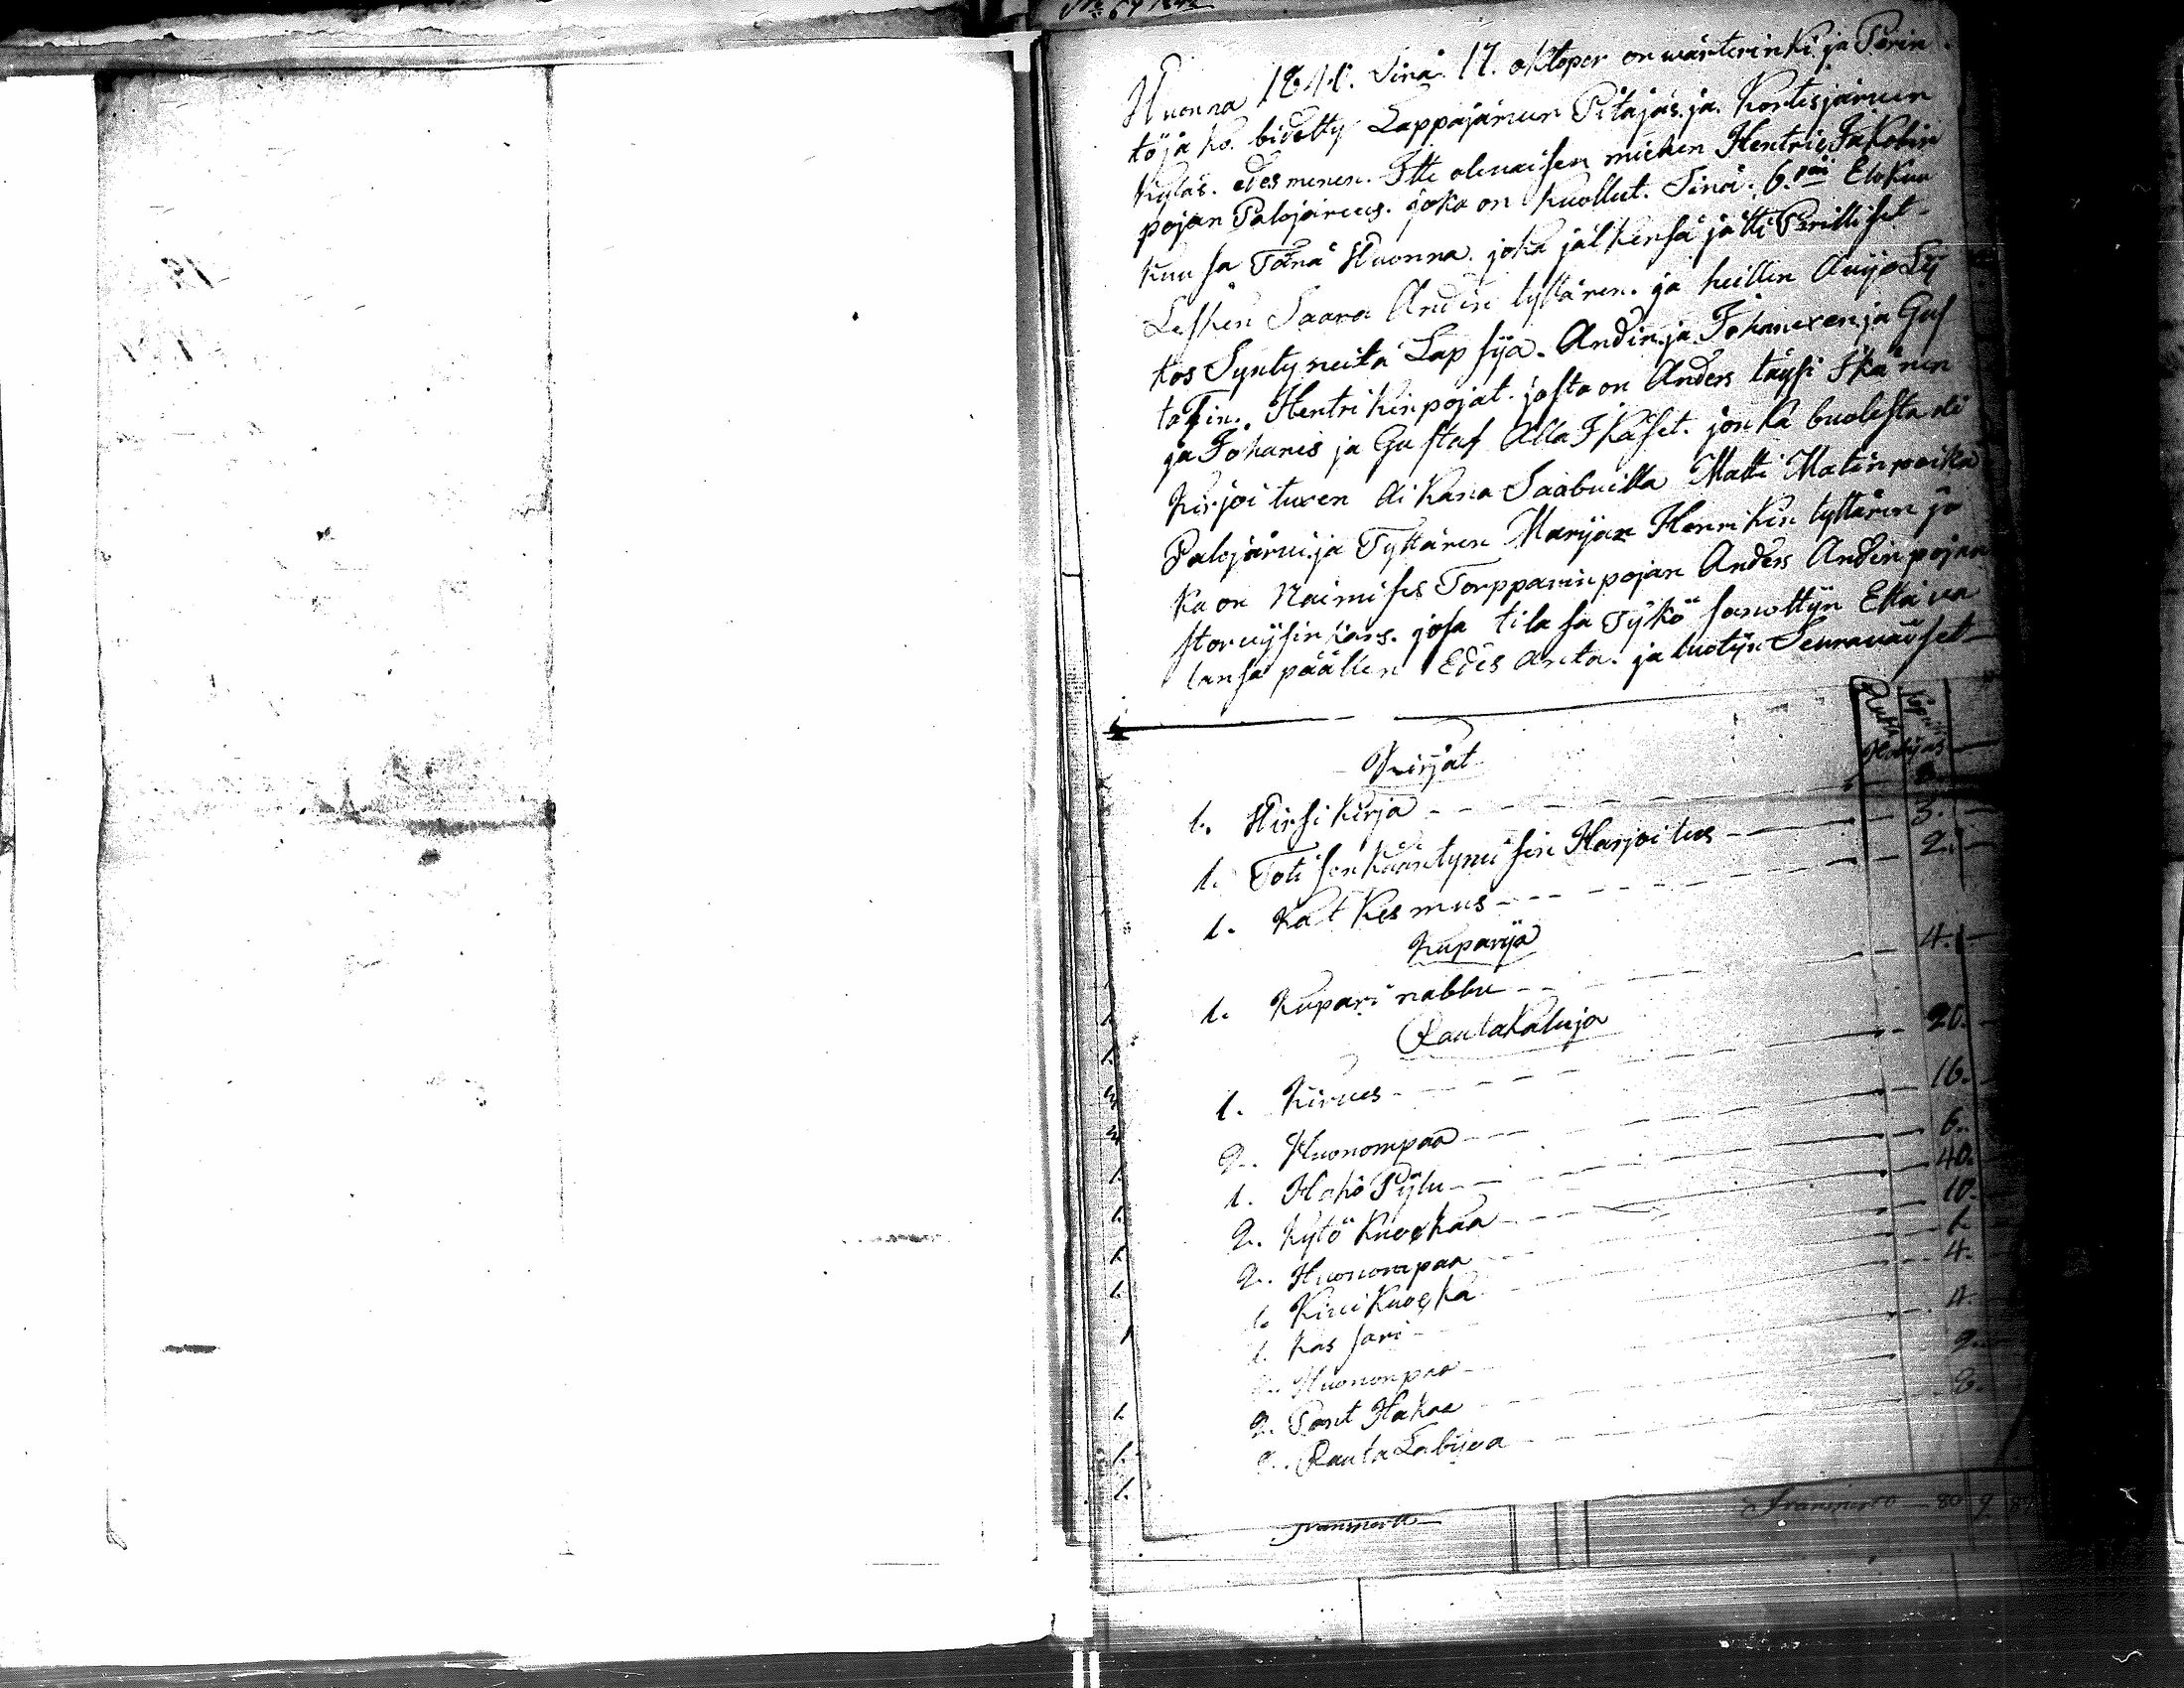 Wuonna 1841. Sinä 17. oktoper on wärterinki ja Perin
töja ko. bidetty Lappajärven Pitäjäs. ja Kortesjärven
Kyläs. edesmenen. Itte olevaisen miehen Hentrie Jakobin
pojan Palojärves. joka on kuollut. Sinä. 6. päi Elokuu
kuusa Tänä Wuonna. joka jälkensä jätti Perilliset
Lesken Saara Andin tyttären. ja heillen Aviosäy
kos Syntyneitä Lapsija. Andin. ja Johanexen ja Gus
tafin. Hentrikin pojat. josta on Anders täysi Ikänen
ja Johanis ja Gustaf Alla Ikäset. jonka buolesta oli
kirjoituxen Aikana Saabuilla Matti Matinpoika
Palojärvi. ja Tyttären Marijan Henrikin tyttären jo
ka on Naimises Torpparinpojan Anders Andinpojan
storvijsin kans. josa tilasa Tykö sanottijn Että va
lansa päällen Edes Anta. ja luotijn Seuravaiset
Rubla
Kopeik
Hopijas
Kirjat
1. Wirsikirja
1. Totisen käändymisen Harjoitus 3.
1. Katkesmus 2.
Kuparija
1. Kupari nabbu 4.
Rautakaluja
1. Kirves 20.
2. Huonompaa 16.
1. Hako Pijlu 6.
2. Kytö Kuockaa 40.
2. Huonompaa 10.
1. Kivi Kuocka 1.
1. Kassari 4.
Huonompaa 4.
2. Pant Hakaa 2.
Rauta Labijoa 8.
Transport
Transport 80